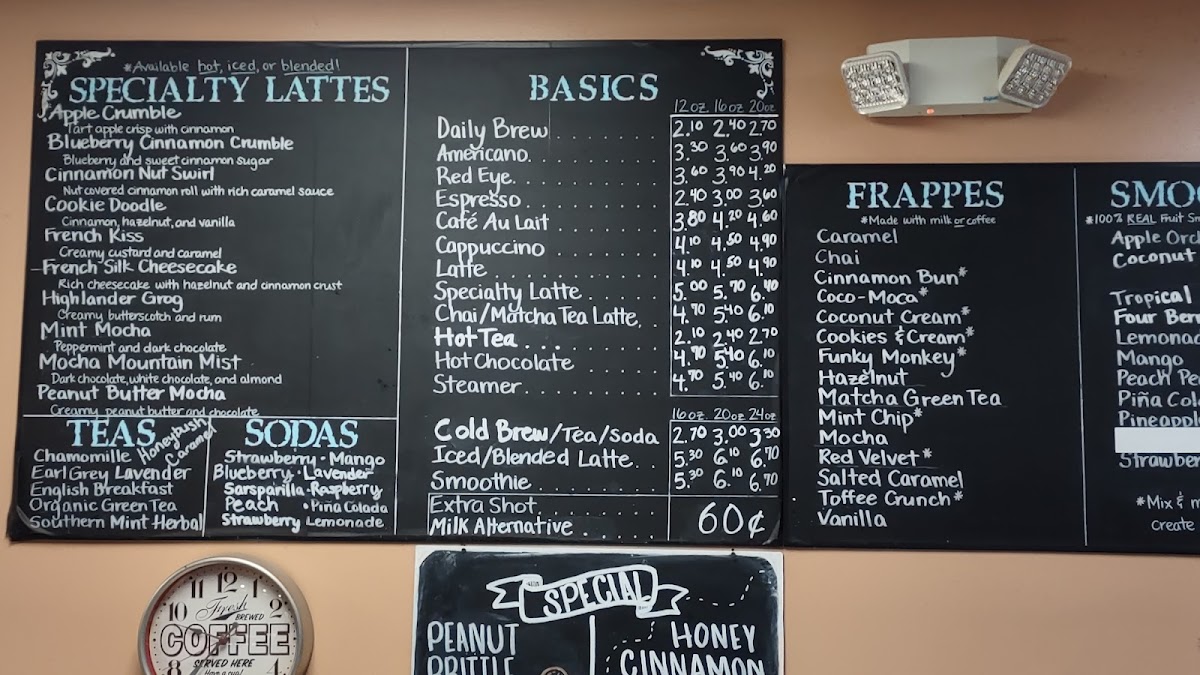 *Available hot, iced, or blended!
SPECIALTY LATTES
Apple Crumble
Tart apple crisp with cinnamon
Blueberry Cinnamon Crumble
Blueberry and sweet cinnamon sugar
Cinnamon Nut Swirl
Nut covered cinnamon roll with rich caramel sauce
Cookie Doodle
Cinnamon, hazelnut, and vanilla
French Kiss
Creamy custard and caramel
French Silk Cheesecake
Rich cheesecake with hazelnut and cinnamon crust
Highlander Grog
Creamy butterscotch and rum
Mint Mocha
Peppermint and dark chocolate
Mocha Mountain Mist
Dark chocolate, white chocolate, and almond
Peanut Butter Mocha
Creamy peanut butter and chocolate
TEAS
Chamomille
Honeybush
Caramel
Earl Grey Lavender
English Breakfast
Organic Green Tea
Southern Mint Herbal
SODAS
Strawberry • Mango
Blueberry • Lavender
Sarsparilla • Raspberry
Peach • Piña Colada
Strawberry Lemonade
BASICS
12oz 16oz 20oz
Daily Brew 2.10 2.40 2.70
Americano 3.30 3.60 3.90
Red Eye 3.60 3.90 4.20
Espresso 2.40 3.00 3.60
Café Au Lait 3.80 4.20 4.60
Cappuccino 4.10 4.50 4.90
Latte 4.10 4.50 4.90
Specialty Latte 5.00 5.70 6.40
Chai/Matcha Tea Latte 4.70 5.40 6.10
Hot Tea 2.10 2.40 2.70
Hot Chocolate 4.70 5.40 6.10
Steamer 4.70 5.40 6.10
16oz 20oz 24oz
Cold Brew/Tea/Soda 2.70 3.00 3.30
Iced/Blended Latte 5.30 6.10 6.70
Smoothie 5.30 6.10 6.70
Extra Shot
Milk Alternative 60¢
FRAPPES
*Made with milk or coffee
Caramel
Chai
Cinnamon Bun*
Coco-Moca*
Coconut Cream*
Cookies & Cream*
Funky Monkey*
Hazelnut
Matcha Green Tea
Mint Chip*
Mocha
Red Velvet*
Salted Caramel
Toffee Crunch*
Vanilla
SMO
*100% REAL Fruit Sm
Apple Orc
Coconut
Tropical
Four Ber
Lemonad
Mango
Peach Pe
Piña Cola
Pineapple
Strawber
*Mix & m
Create
SPECIAL
PEANUT
BRITTLE
HONEY
CINNAMON
11 12 1
10 2
9 3
8 4
Fresh
BREWED
COFFEE
SERVED HERE
Have a cup!